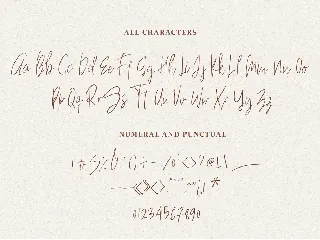 ALL CHARACTERS
Aa Bb Cc Dd Ee Ff Gg Hh Ii Jj Kk Ll Mm Nn Oo
Pp Qq Rr Ss Tt Uu Vv Ww Xx Yy Zz
NUMERAL AND PUNCTUAL
0123456789